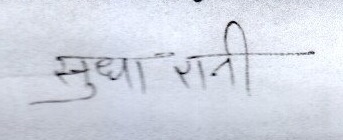 सुधा रानी